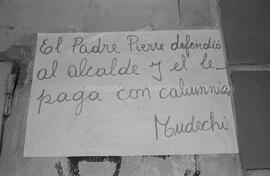 El Padre Pierre defendió
al alcalde y el le-
paga con calumnia
Mudechi